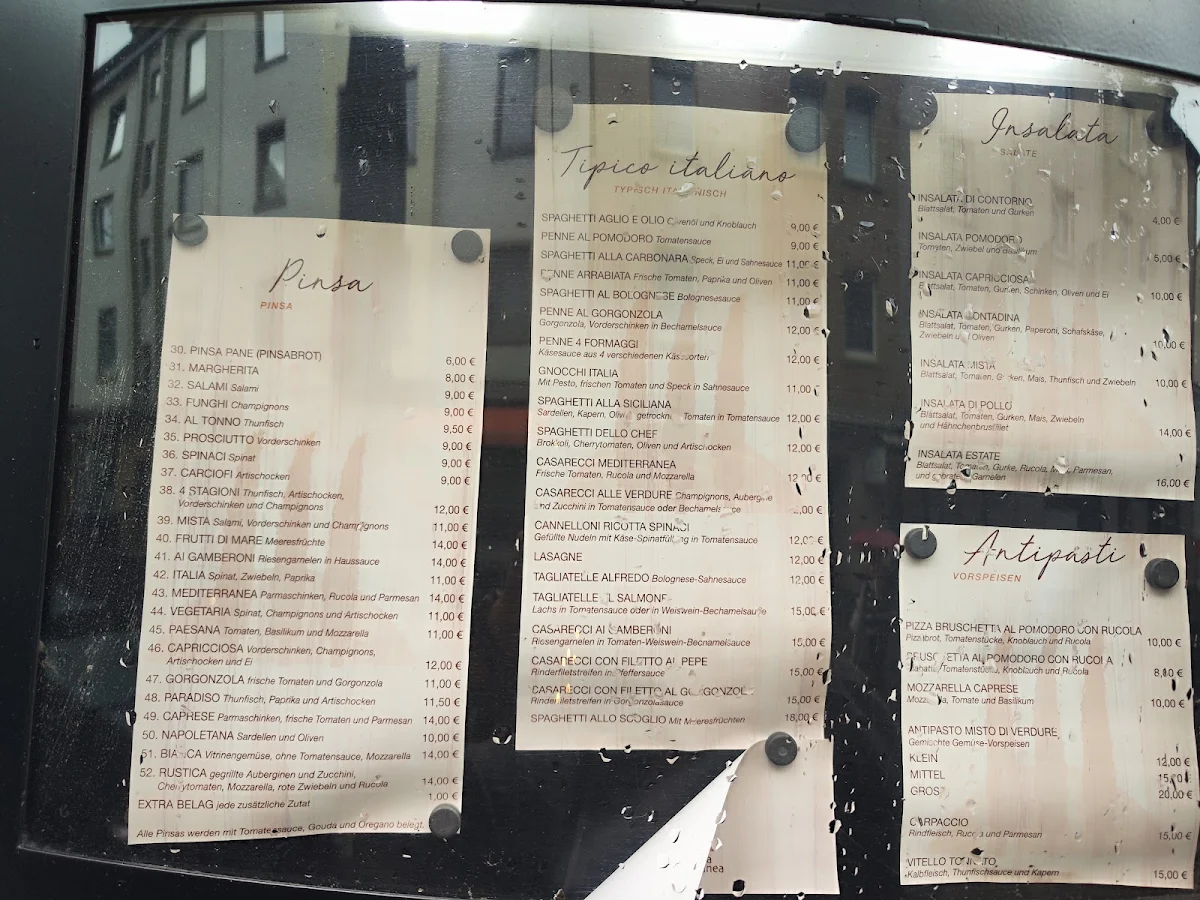 Pinsa
PINSA
30. PINSA PANE (PINSABROT) 6,00 €
31. MARGHERITA 8,00 €
32. SALAMI Salami 9,00 €
33. FUNGHI Champignons 9,00 €
34. AL TONNO Thunfisch 9,50 €
35. PROSCIUTTO Vorderschinken 9,00 €
36. SPINACI Spinat 9,00 €
37. CARCIOFI Artischocken 9,00 €
38. 4 STAGIONI Thunfisch, Artischocken,
Vorderschinken und Champignons 12,00 €
39. MISTA Salami, Vorderschinken und Champignons 11,00 €
40. FRUTTI DI MARE Meeresfrüchte 14,00 €
41. AI GAMBERONI Riesengarnelen in Haussauce 14,00 €
42. ITALIA Spinat, Zwiebeln, Paprika 11,00 €
43. MEDITERRANEA Parmaschinken, Rucola und Parmesan 14,00 €
44. VEGETARIA Spinat, Champignons und Artischocken 11,00 €
45. PAESANA Tomaten, Basilikum und Mozzarella 11,00 €
46. CAPRICCIOSA Vorderschinken, Champignons,
Artischocken und Ei 12,00 €
47. GORGONZOLA frische Tomaten und Gorgonzola 11,00 €
48. PARADISO Thunfisch, Paprika und Artischocken 11,50 €
49. CAPRESE Parmaschinken, frische Tomaten und Parmesan 14,00 €
50. NAPOLETANA Sardellen und Oliven 10,00 €
51. BIANCA Vitrinengemüse, ohne Tomatensauce, Mozzarella 14,00 €
52. RUSTICA gegrillte Auberginen und Zucchini,
Cherrytomaten, Mozzarella, rote Zwiebeln und Rucola 14,00 €
EXTRA BELAG jede zusätzliche Zutat 1,00 €
Alle Pinsas werden mit Tomatensauce, Gouda und Oregano belegt.
Tipico italiano
TYPISCH ITALIENISCH
SPAGHETTI AGLIO E OLIO Olivenöl und Knoblauch 9,00 €
PENNE AL POMODORO Tomatensauce 9,00 €
SPAGHETTI ALLA CARBONARA Speck, Ei und Sahnesauce 11,00 €
PENNE ARRABIATA Frische Tomaten, Paprika und Oliven 11,00 €
SPAGHETTI AL BOLOGNESE Bolognesesauce 11,00 €
PENNE AL GORGONZOLA
Gorgonzola, Vorderschinken in Bechamelsauce 12,00 €
PENNE 4 FORMAGGI
Käsesauce aus 4 verschiedenen Käsesorten 12,00 €
GNOCCHI ITALIA
Mit Pesto, frischen Tomaten und Speck in Sahnesauce 11,00 €
SPAGHETTI ALLA SICILIANA
Sardellen, Kapern, Oliven, getrocknete Tomaten in Tomatensauce 12,00 €
SPAGHETTI DELLO CHEF
Brokkoli, Cherrytomaten, Oliven und Artischocken 12,00 €
CASARECCI MEDITERRANEA
Frische Tomaten, Rucola und Mozzarella 12,00 €
CASARECCI ALLE VERDURE Champignons, Aubergine
und Zucchini in Tomatensauce oder Bechamelsauce
CANNELLONI RICOTTA SPINACI
Gefüllte Nudeln mit Käse-Spinatfüllung in Tomatensauce 12,00 €
LASAGNE 12,00 €
TAGLIATELLE ALFREDO Bolognese-Sahnesauce 12,00 €
TAGLIATELLE AL SALMONE
Lachs in Tomatensauce oder in Weiswein-Bechamelsauce 15,00 €
CASARECCI AI GAMBERONI
Riesengarnelen in Tomaten-Weiswein-Bechamelsauce 15,00 €
CASARECCI CON FILETTO AL PEPE
Rinderfiletstreifen in Pfeffersauce 15,00 €
CASARECCI CON FILETTO AL GORGONZOLA
Rinderfiletstreifen in Gorgonzolasauce 15,00 €
SPAGHETTI ALLO SCOGLIO Mit Meeresfrüchten 18,00 €
nea
Insalata
SALATE
INSALATA DI CONTORNO
Blattsalat, Tomaten und Gurken 4,00 €
INSALATA POMODORO
Tomaten, Zwiebel und Basilikum 5,00 €
INSALATA CAPRICCIOSA
Blattsalat, Tomaten, Gurken, Schinken, Oliven und Ei 10,00 €
INSALATA CONTADINA
Blattsalat, Tomaten, Gurken, Peperoni, Schafskäse,
Zwiebeln und Oliven 10,00 €
INSALATA MISTA
Blattsalat, Tomaten, Gurken, Mais, Thunfisch und Zwiebeln 10,00 €
INSALATA DI POLLO
Blattsalat, Tomaten, Gurken, Mais, Zwiebeln
und Hähnchenbrustfilet 14,00 €
INSALATA ESTATE
Blattsalat, Tomaten, Gurke, Rucola, Parmesan,
und gebratene Garnelen 16,00 €
Antipasti
VORSPEISEN
PIZZA BRUSCHETTA AL POMODORO CON RUCOLA
Pizzabrot, Tomatenstücke, Knoblauch und Rucola 10,00 €
BRUSCHETTA AL POMODORO CON RUCOLA
Ciabatta, Tomatenstücke, Knoblauch und Rucola
MOZZARELLA CAPRESE
Mozzarella, Tomate und Basilikum 10,00 €
ANTIPASTO MISTO DI VERDURE
Gemischte Gemüse-Vorspeisen
KLEIN 12,00 €
MITTEL
GROSS 20,00 €
CARPACCIO
Rindfleisch, Rucola und Parmesan 15,00 €
VITELLO TONNATO
Kalbfleisch, Thunfischsauce und Kapern 15,00 €